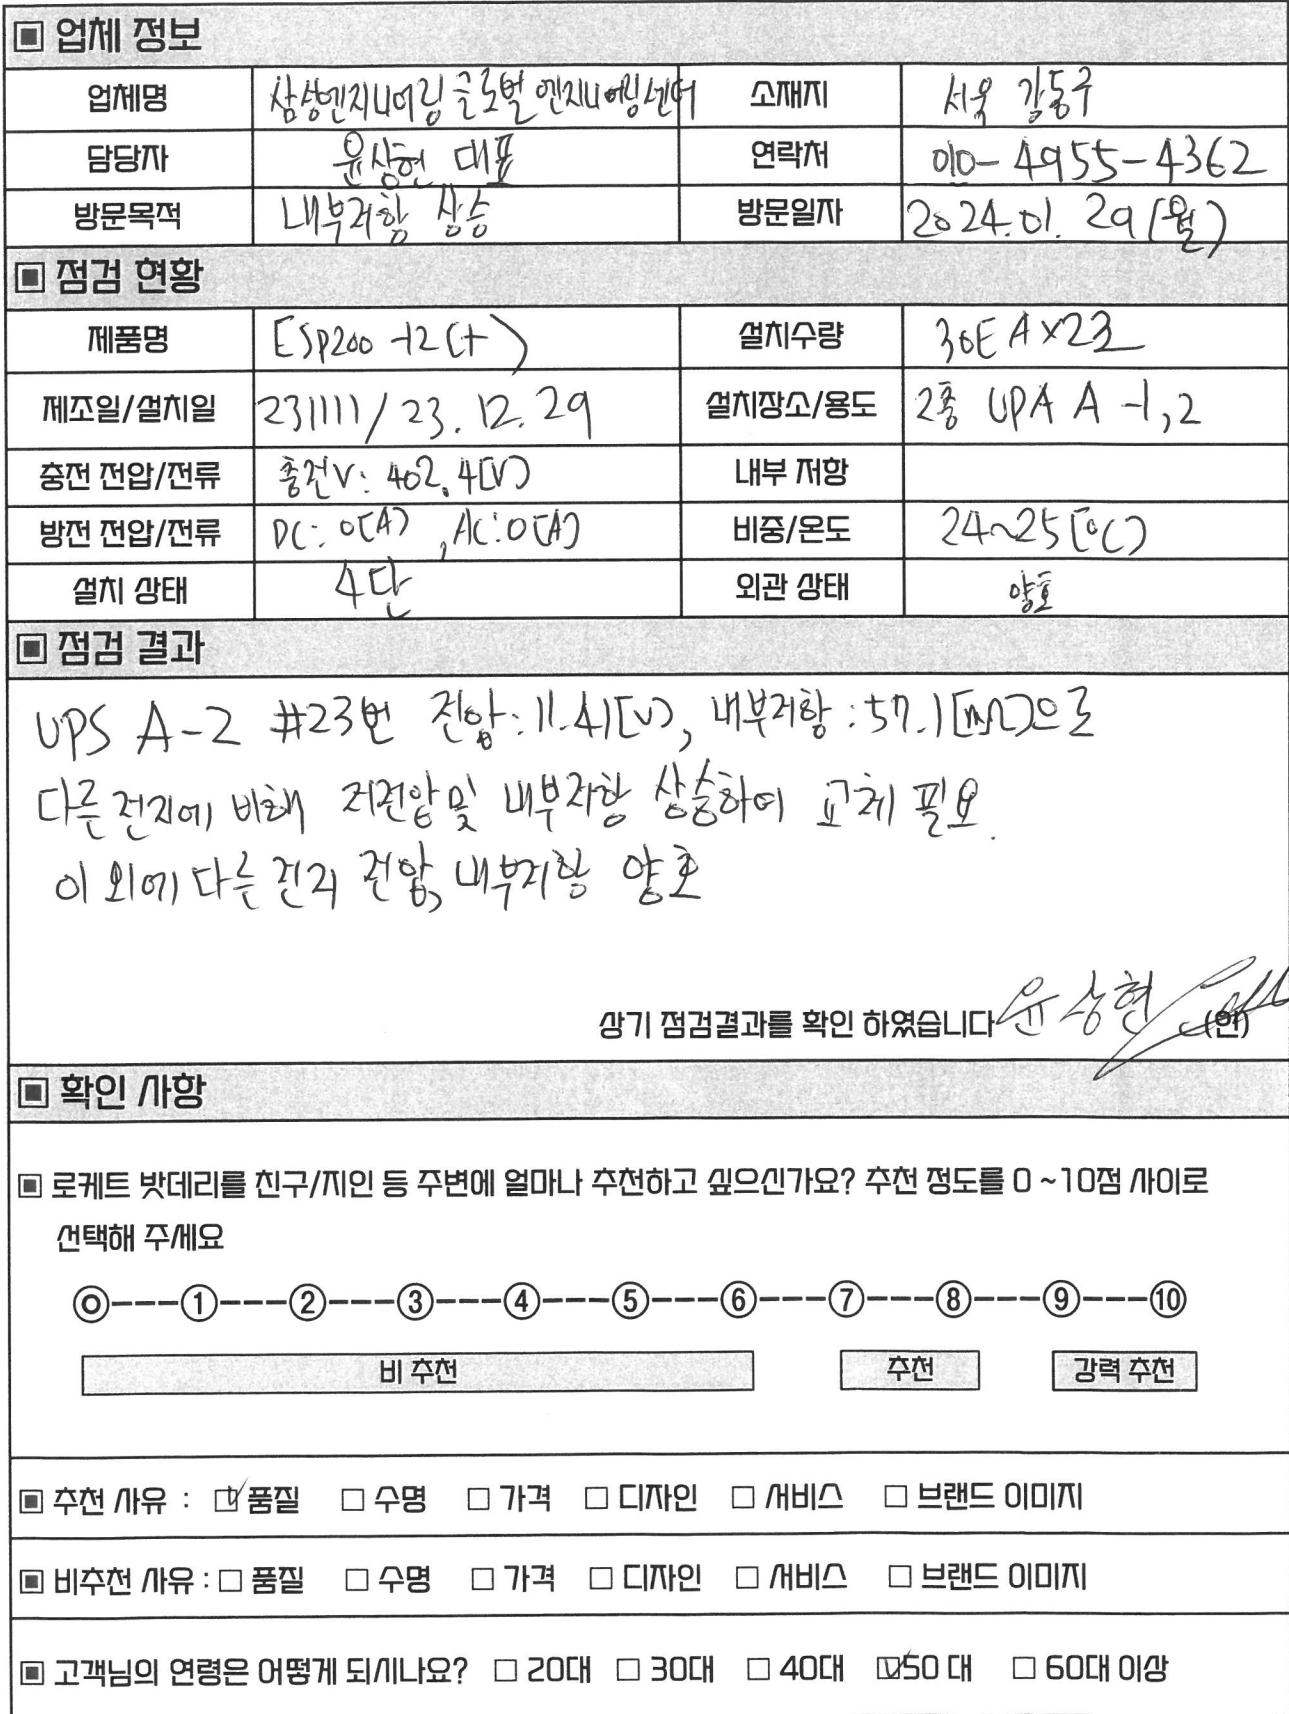 ▣ 업체 정보
업체명 삼성엔지니어링 글로벌 엔지니어링센터 소재지 서울 강동구
담당자 윤상현 대표 연락처 010-4955-4362
방문목적 내부저항 상승 방문일자 2024.01.29(월)
▣ 점검 현황
제품명 ESP200-12(+) 설치수량 30EA×2조
제조일/설치일 231111/23.12.29 설치장소/용도 2층 UPA A-1,2
충전 전압/전류 충전V: 402.4[V] 내부 저항
방전 전압/전류 DC: 0[A], AC: 0[A] 비중/온도 24~25[℃]
설치 상태 4단 외관 상태 양호
▣ 점검 결과
UPS A-2 #23번 전압: 11.41[V], 내부저항: 57.1[mΩ]으로
다른 전지에 비해 저전압 및 내부저항 상승하여 교체 필요.
이 외에 다른 전지 전압, 내부저항 양호
상기 점검결과를 확인 하였습니다 윤상현 (인)
▣ 확인 사항
▣ 로케트 밧데리를 친구/지인 등 주변에 얼마나 추천하고 싶으신가요? 추천 정도를 0 ~10점 사이로
선택해 주세요
⓪---①---②---③---④---⑤---⑥---⑦---⑧---⑨---⑩
비 추천 추천 강력 추천
▣ 추천 사유 : ☑ 품질 □ 수명 □ 가격 □ 디자인 □ 서비스 □ 브랜드 이미지
▣ 비추천 사유 : □ 품질 □ 수명 □ 가격 □ 디자인 □ 서비스 □ 브랜드 이미지
▣ 고객님의 연령은 어떻게 되시나요? □ 20대 □ 30대 □ 40대 ☑ 50 대 □ 60대 이상